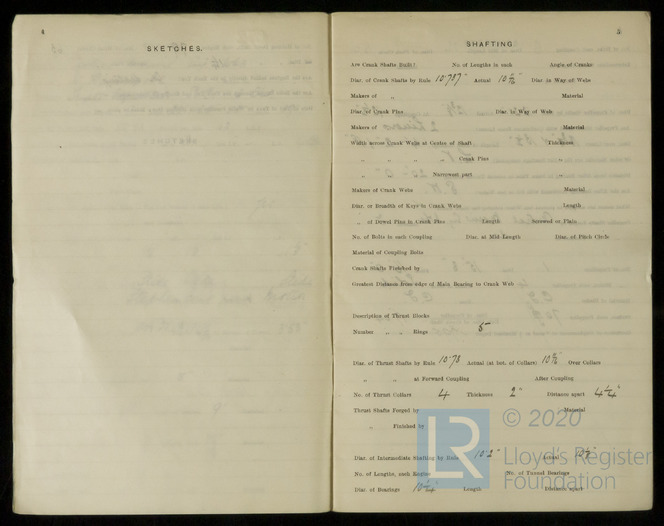 4
SKETCHES.
5
SHAFTING
Are Crank Shafts Built? No of Lengths in each Angle of Cranks
Diar. of Crank Shafts by Rule 10.787" Actual Diar. in Way of Webs
Makers of " Material
Diar. of Crank Pins Diar. in Way of Web
Makers of Material
Width across Crank Webs at Centre of Shaft Thickness
" " " Crank Pins "
" Narrowest part "
Makers of Crank Webs Material
Diar. or Breadth of Keys in Crank Webs Length
" of Dowel Pins in Crank Pins Length Screwed or Plain
No. of Bolts in each Coupling Diar. at Mid Length Diar. of Pitch Circle
Material of Coupling Bolts
Crank Shafts Finished by
Greatest Distance from edge of Main Bearing to Crank Web
Description of Thrust Blocks
Number " " Rings 5
Diar. of Thrust Shafts by Rule 10.78 Actual (at bot. of Collars) Over Collars
" " at Forward Coupling After Coupling
No. of Thrust Collars 4 Thickness 2" Distance apart
Thrust Shafts Forged by Material
" Finished by
Diar. of Intermediate Shafting by Rule 10.2" Actual
No. of Lengths, each Engine No. of Tunnel Bearings
Diar. of Bearings Length Distance apart
LR © 2020
Lloyd's Register
Foundation